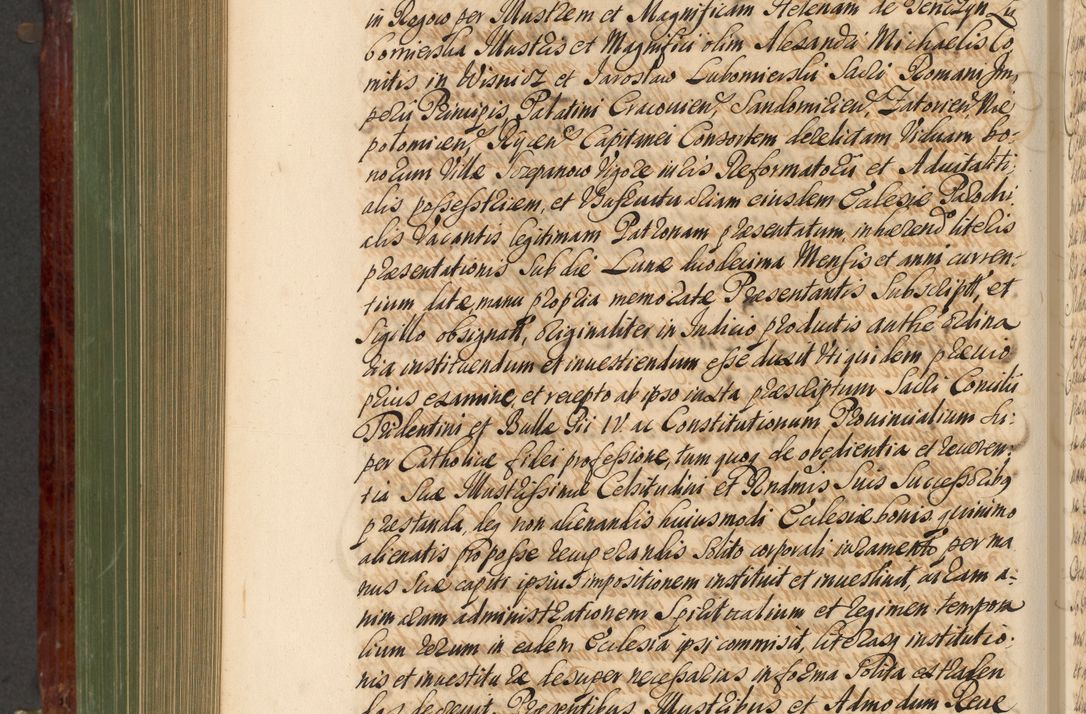 in Regow per Illustrem et Magnificam Helenam de Tenczyn Lu
bomierska Illustris et Magnifici olim Alexandri Michaelis Co
mitis in Wisnicz et Jaroslaw Lubomierski Sacri Romani Im,
perii Principis, Palatini Cracovien, Sandomirien, Zatorien Nie
polomicen, Rycien Capitanei Consortem derelictam Viduam bo-
norum Villæ Szczepanow Vigore iuris Reformatorii et Advitaliti
alis possessricem, et Usufructuariam eiusdem Ecclesiæ Parochi
alis Vacantis legitimam Patronam præsentatum, inhærend literis
præsentationis Sub die Lunæ duodecima Mensis et anni curren-
tium datæ, manu propria memoratæ Præsentantis Subscript, et
Sigillo obsignatt, originaliter in Judicio productis authē ordina
ria instituendum et investiendum esse duxit Uti quidem prævio
prius examine, et recepto ab ipso iuxta præscriptum Sacri Concilii
Tridentini et Bullæ Pii IV. ac Constitutionum Provincialium Su-
per Catholicæ fidei professione, tum quoq de obedientia et reveren-
tia Suæ Illustrissimæ Celsitudini et Rndmis Suis Successoribq
præstanda, deq non alienandis huiusmodi Ecclesiæ bonis, quinimo
alienatis pro posse recuperandis Solito corporali iuramento, per ma
nus Suæ capiti ipsius impositionem instituit et investivit, curam a-
nimarum administrationem Spiritualium et regimen tempora
lium rerum in eadem Ecclesia ipsi commisit, literasq institutio-
nis et investituræ desuper necessarias in forma Solita extraden
das decrevit. Præsentibus Illustribus et Admodum Reve